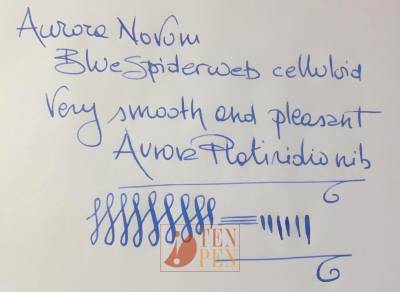 Aurora Novum
Blue Spiderweb celluloid
Very smooth and pleasant
Aurora Platiridio nib
TEN
PEN